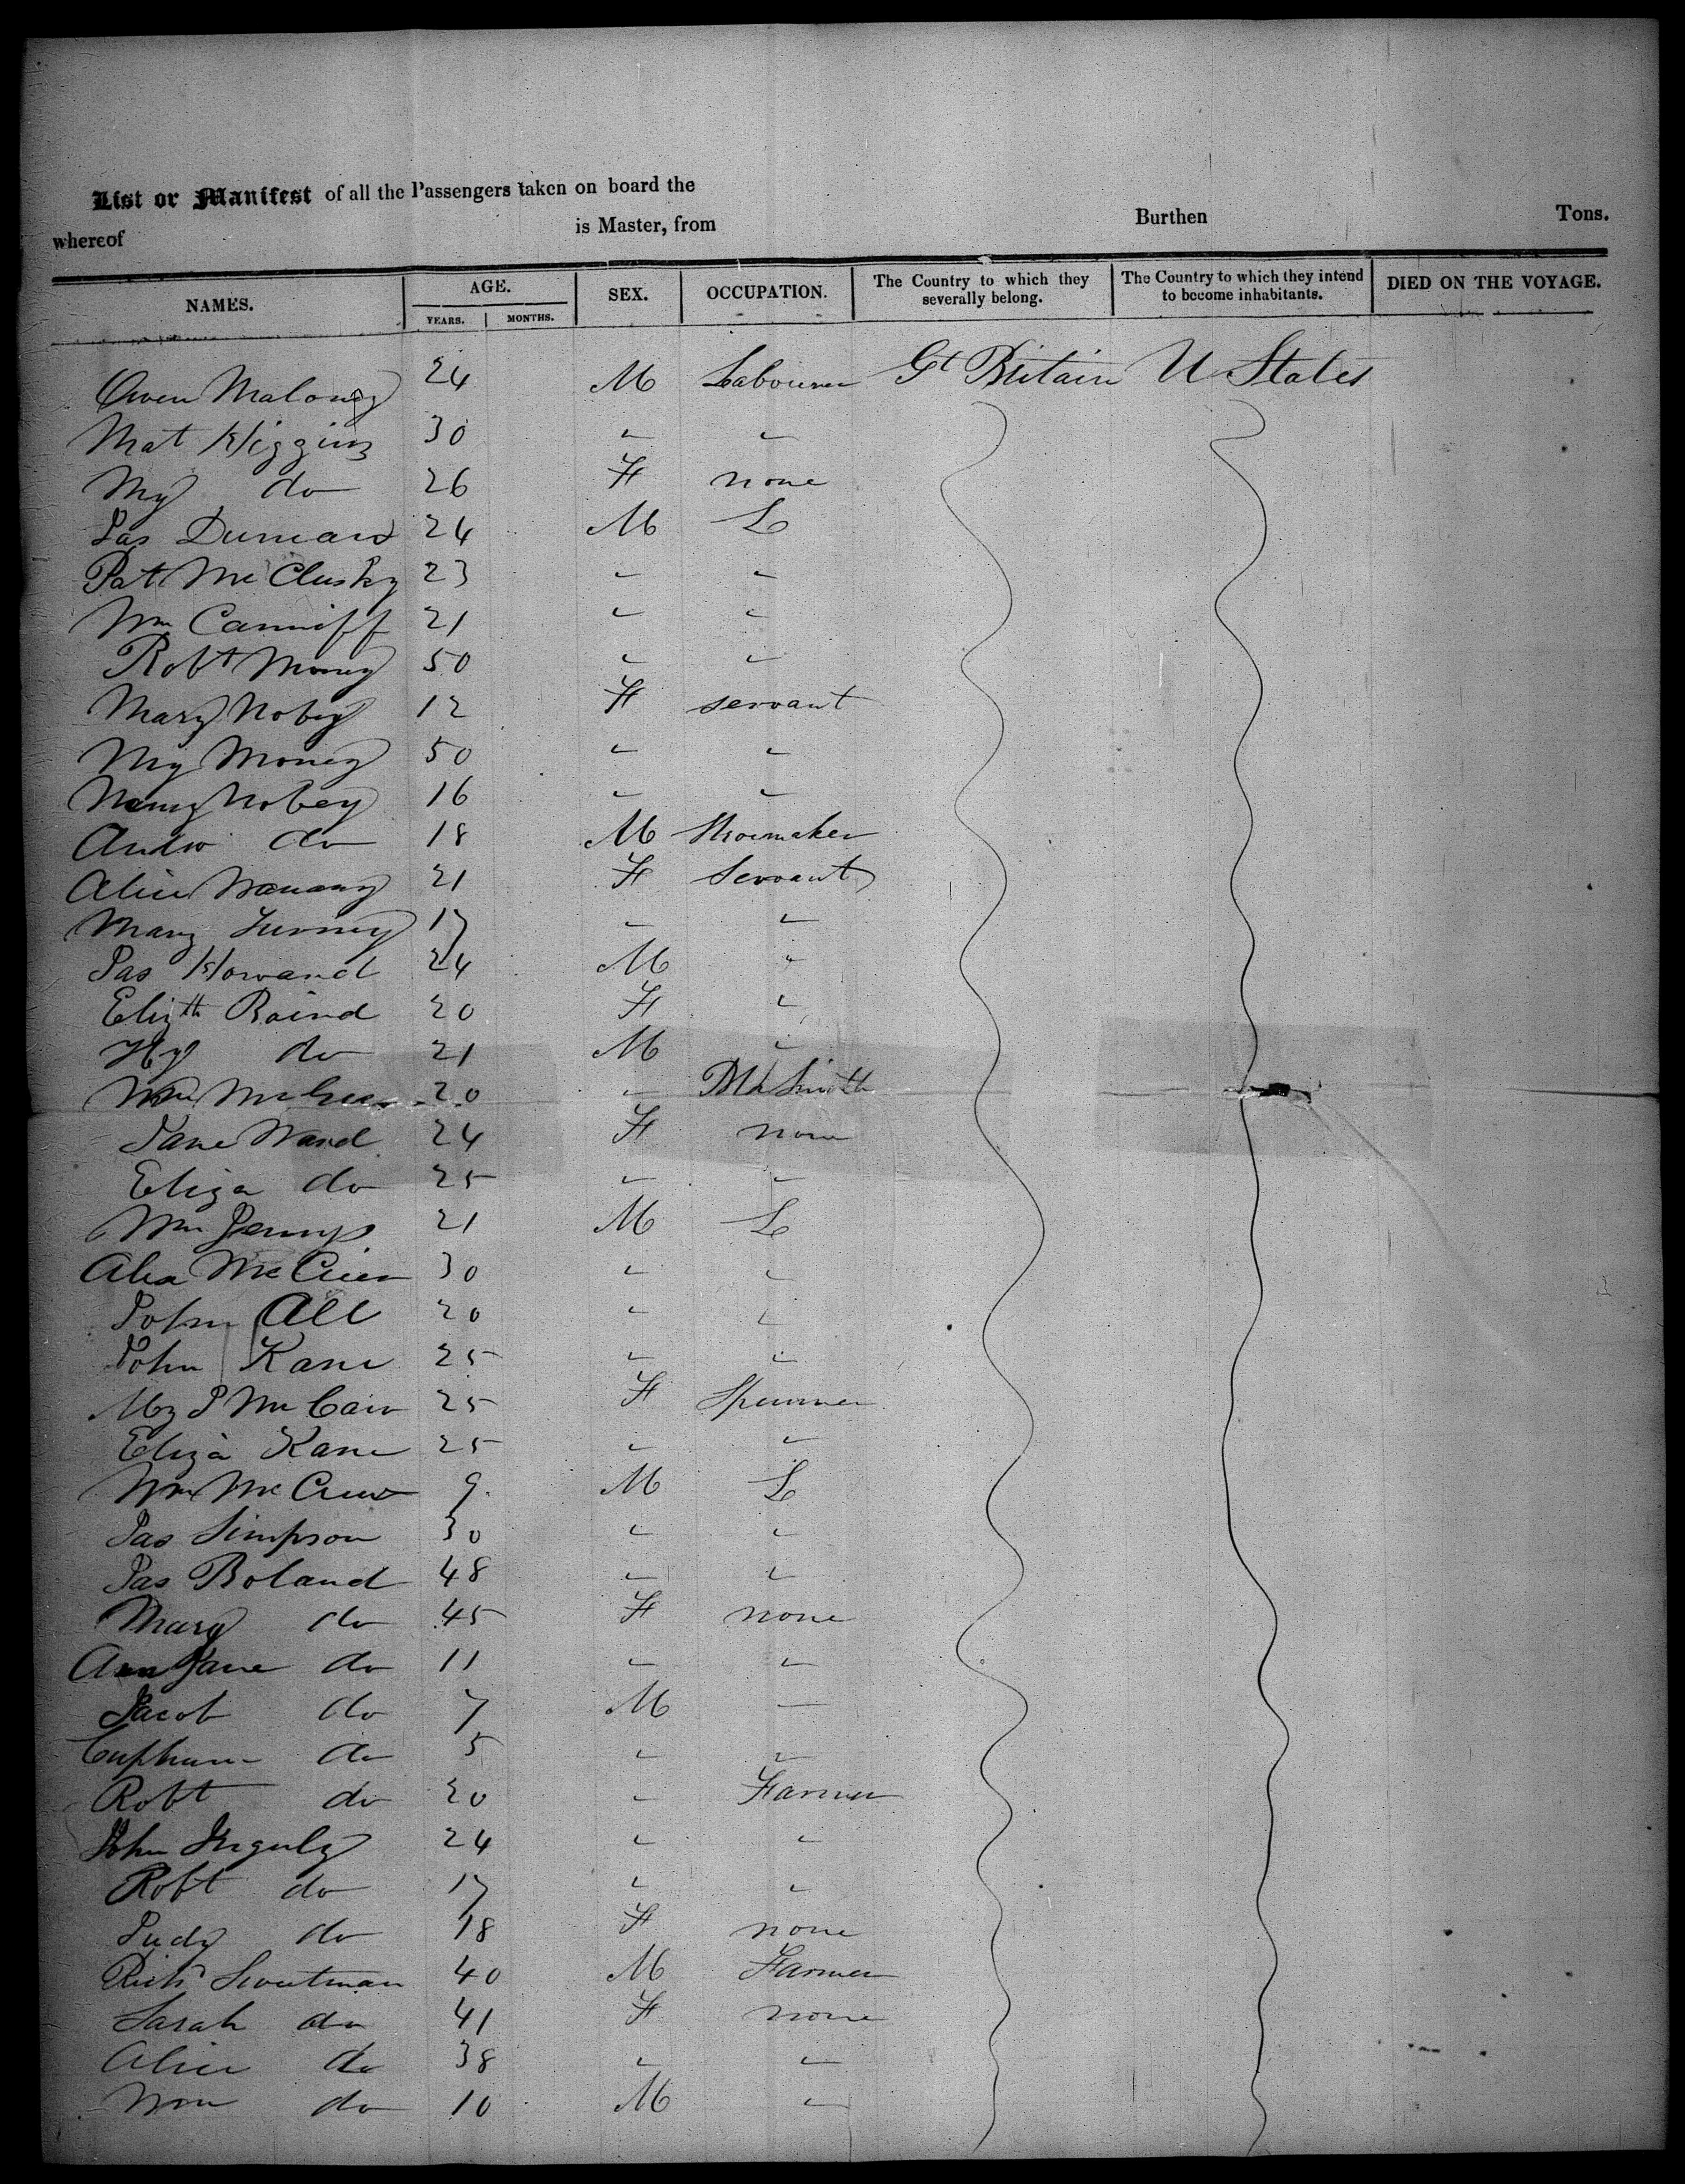 List or Manifest of all the Passengers taken on board the
whereof is Master, from Burthen Tons.
NAMES. AGE. SEX. OCCUPATION. The Country to which they severally belong. The Country to which they intend to become inhabitants. DIED ON THE VOYAGE.
YEARS. MONTHS.
Owen Maloney 24 M Labourer Gt Britain U States
Mat Higgins 30 " "
My do 26 F none
Jas 24 M L
Pat McClusky 23 " "
Wm Canniff 21 " "
Robt Money 50 " "
Mary Nobey 12 F servant
My Money 50 " "
Nancy Nobey 16 " "
Andw do 18 M Shoemaker
Alice 21 F Servant
Mary 17 " "
Jas Howard 24 M "
Elizth Baird 20 F "
Hy do 21 M "
Wm 20 " Blk Smith
Jane Ward 24 F none
Eliza do 25 " "
Wm 21 M L
Alex 30 " "
John All 20 " "
John Kane 25 " "
My J 25 F Spinner
Eliza Kane 25 " "
Wm 9 M L
Jas Simpson 30 " "
Jas Boland 48 " "
Mary do 45 F none
Ann Jane do 11 " "
Jacob do 7 M "
do 5 " "
Robt do 20 " Farmer
John 24 " "
Robt do 17 " "
Judy do 18 F none
Richd 40 M Farmer
Sarah do 41 F none
Alice do 38 " "
Wm do 10 M "